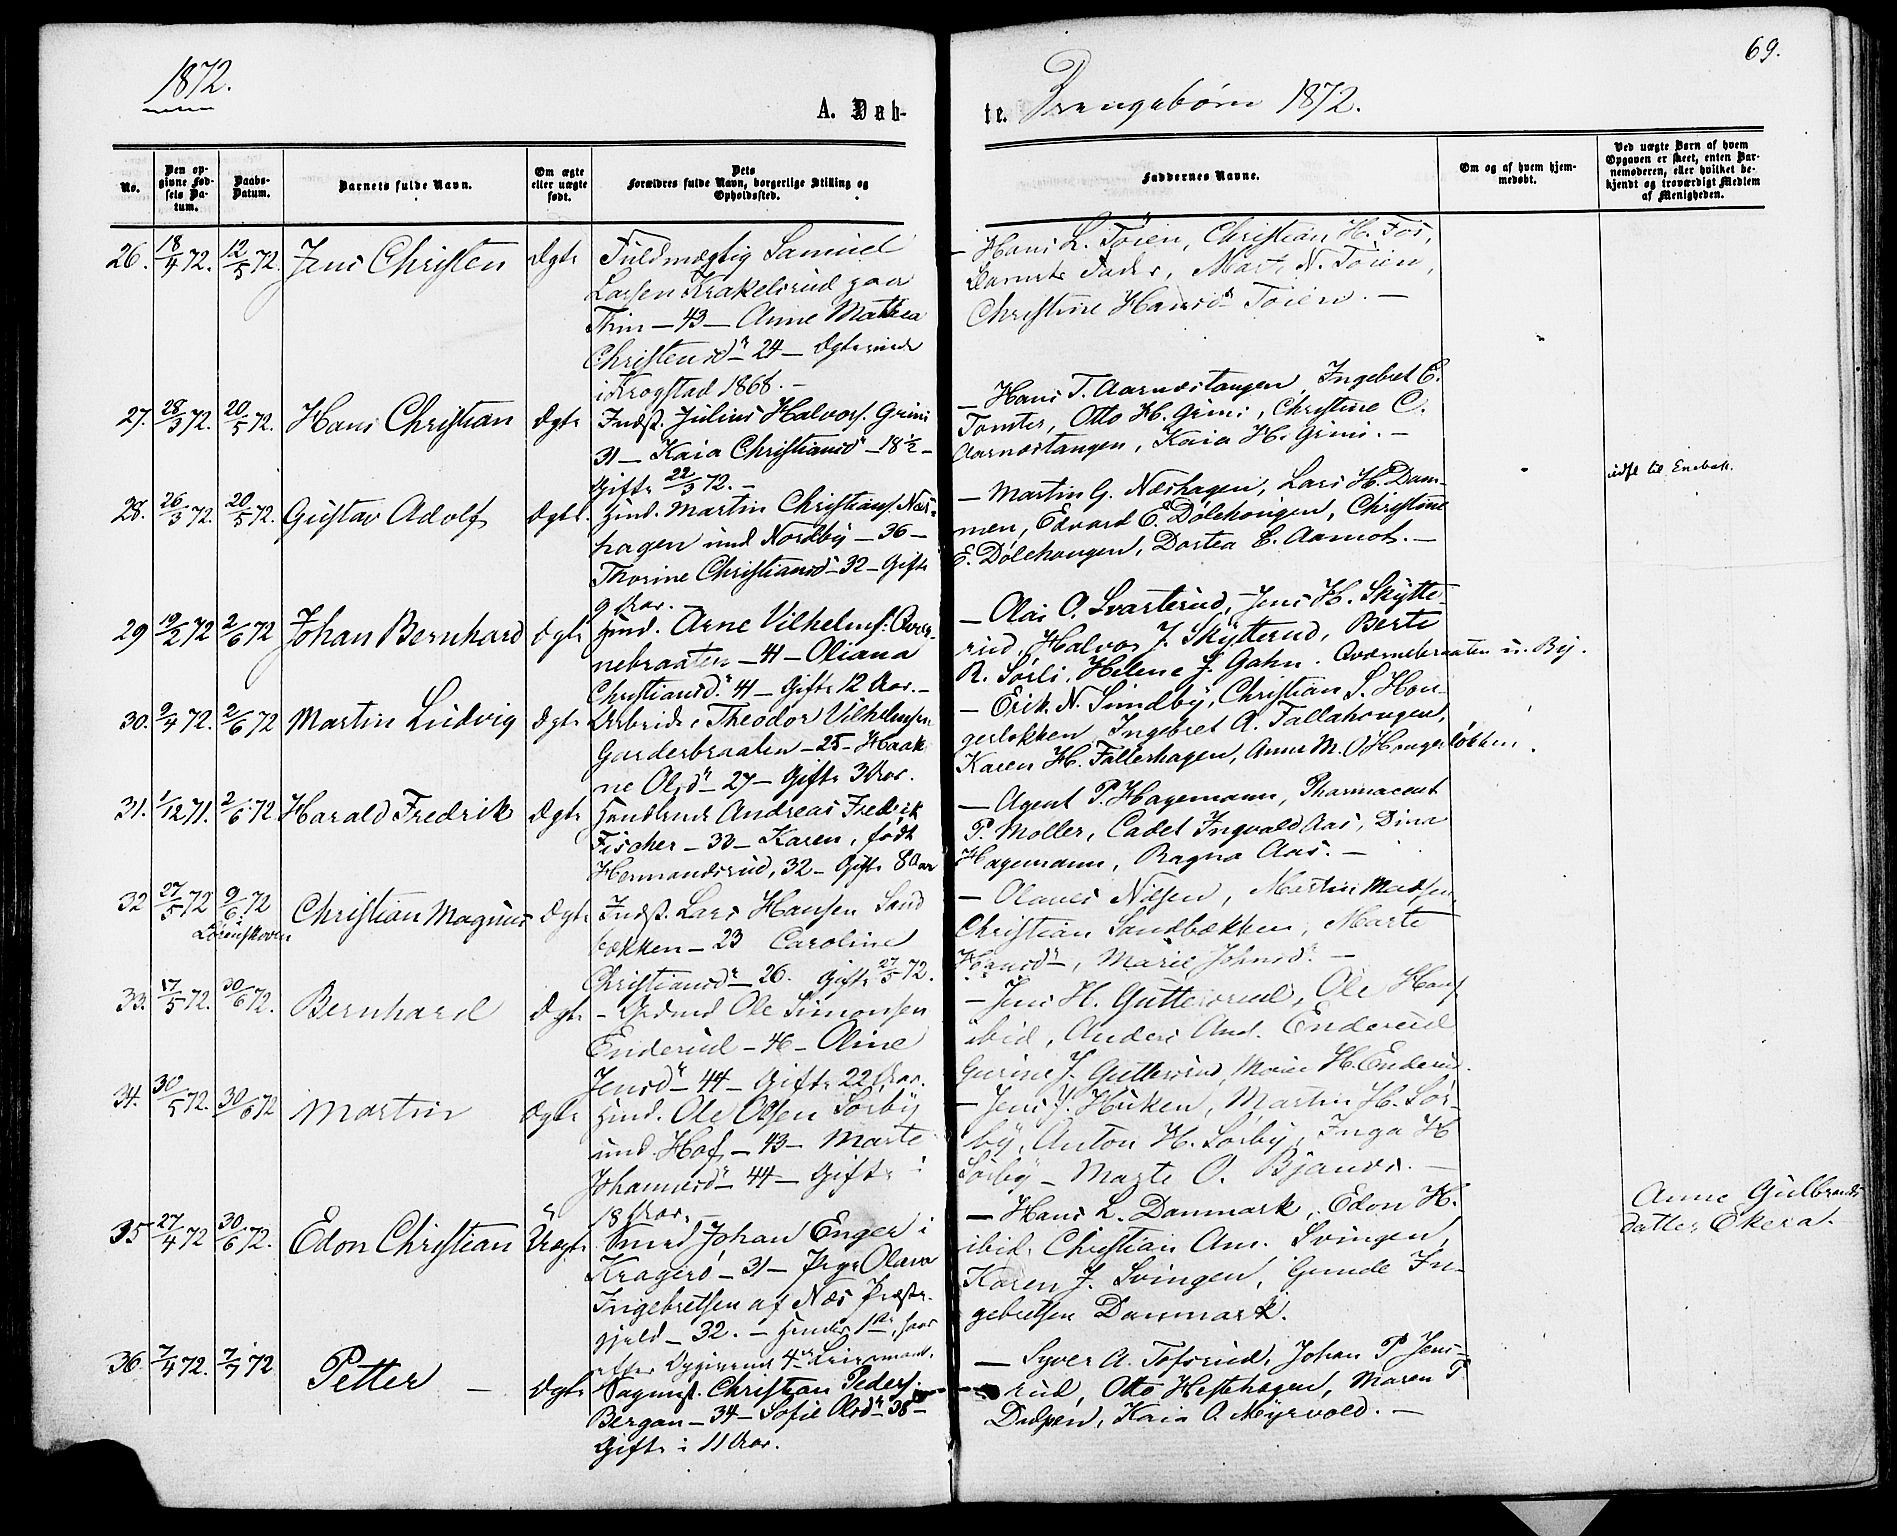 1872.
69.
A. Dåb-
te. Drengebørn 1872.
No.
Den op-
givne Fød-
sels Da-
tum.
Daabs-
Datum.
Barnets fulde Navn.
Om ægte
eller uægte
født.
Dets
Forældres fulde Navn, borgerlige Stilling og
Opholdssted.
Faddernes Navne.
Om og af hvem hjem-
medøbt.
Ved uægte Børn af hvem
Opgaven er skeet, enten Bar-
nemoderen, eller hvilket be-
kjendt og troværdigt Medlem
af Menigheden.
26. 18/4 72. 12/5 72. Jens Christen Ægte
Fuldmægtig Samuel
Larsen Krakelsrud paa
Thin — 43 — Anne Mathea
Christensdr — 24 — Ægteviede
i Krogstad 1868. —
— Hans L. Töien, Christian H. Fos,
Barnets Fader, Mart. N. Töien,
Christine Hansdr Töien. —
27. 28/3 72. 20/5 72. Hans Christian Ægte
Indst. Julius Halvors. Grini
31 — Kaia Christiansdr — 18½ —
Gifte 22/3 72. —
— Hans T. Aarnæstangen, Ingebret E.
Tomter, Otto H. Grini, Christine C.
Aarnæstangen, Kaia H. Grini. —
udfl til Enebak.
28. 26/3 72. 20/5 72. Gustav Adolf Ægte.
Huud. Martin Christians. Næs-
hagen und Nordby — 36 —
Thorine Christiansdr — 32 — Gifte
9 Aar. —
— Martin G. Næshagen, Lars H. Dam-
men, Edvard E. Dølehougen, Christine
E. Dølehougen, Dortea E. Aamot. —
29 19/2 72 2/6 72 Johan Bernhard Ægte
Huud. Arne Vilhelms. Qver-
nebraaten — 41 — Oliana
Christiansdr. 41 — Gifte 12 Aar. —
— Olai O. Svarterud, Jens H. Skytte-
rud, Halvor J. Skytterud, Berte
R. Sørli, Helene J. Gahn. Qværnebraaten u. By.
30. 9/4 72. 2/6 72 Martin Ludvig Ægte
Arbeider Theodor Vilhelmsen
Garderbraaten — 25 — Haak
ne Olsdr — 27 — Gifte 3 Aar.
— Erik N. Sundby, Christian S. Hou-
gerløkken, Ingebret A. Fallahougen,
Karen H. Fallerhagen, Anne M. O Hougerløkken.
31. 1/12 71. 2/6 72 Harald Fredrik Ægte
Handlende Andreas Fredrik
Fischer — 33 — Karen, født
Hermandsrud, 32 — Gifte 8 Aar
— Agent P. Hagemann, Pharmaceut
P. Møller, Cadet Ingvald Aas, Dina
Hagemann, Ragna Aas. —
32 27/5 72 9/6 72 Christian Magnus Ægte
Lørenskoven
Indst. Lars Hansen Sand
bækken — 23 Caroline
Christiansdr — 26. Gifte 27/5 72.
— Olaves Nilsen, Martin Madsen
Christian Sandbækken, Marte
Hansdr —, Marie Johnsdr. —
33. 17/5 72. 30/6 72. Bernhard Ægte
— Grdmd Ole Simonsen
Enderud — 46 — Oline
Jensdr — 44 — Gifte 22 Aar.
— Jens H. Guttersrud, Ole Hans
ibid, Anders And. Enderud
Gurine J. Guttersrud, Marie H. Enderud.
34. 30/5 72. 30/6 72 Martin Ægte
Huud. Ole Olsen Sørby
und. Hof — 43 — Marte
Johannesdr — 44 — Gifte i
18 Aar. —
— Jens J. Huken, Martin H. Sør-
by, Anton H. Sørby, Inga H
Sørby — Marte O. Bjanæs. —
35 27/4 72 30/6 72. Edon Christian Uægte.
Smed Johan Enger i
Kragerö — 31 — Pige Olava
Ingebretsen af Næs Præste-
gjeld — 32. — Hendes 1ste, hans
efter Opgivende 4de Leiermaal.
— Hans L. Danmark, Edon H.
ibid. Christian Am. Svingen,
Karen J. Svingen, Gunde In-
gebretsen Danmark.
Anne Gulbrands
datter Ekera.
36. 7/4 72. 7/7 72 Petter — Ægte
Sagmst. Christian Peders.
Bergan — 34 — Sofie Olsdr 38 —
Gifte i 11 Aar.
— Syver A. Tofsrud, Johan P Jens-
rud, Otto Hestehagen, Maren P
Dalpen, Kaia O. Myrvold. —